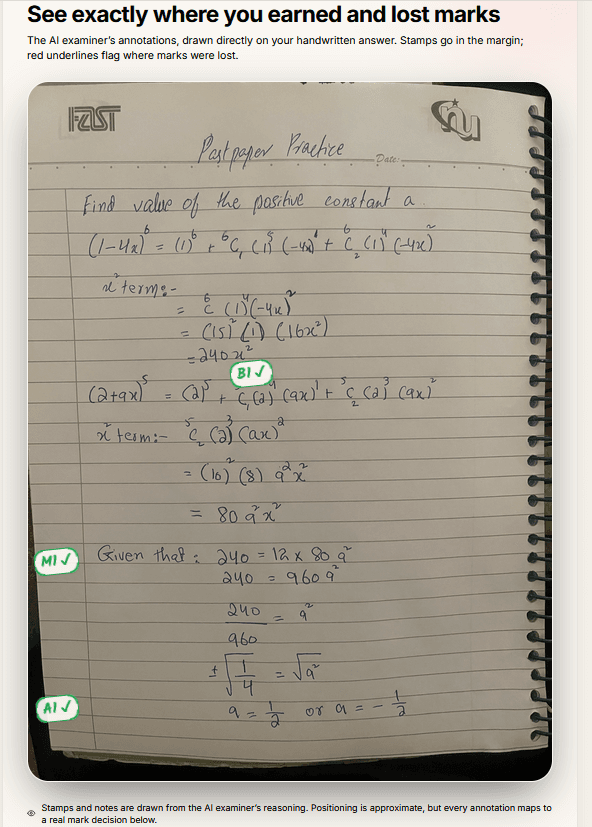 See exactly where you earned and lost marks
The AI examiner's annotations, drawn directly on your handwritten answer. Stamps go in the margin;
red underlines flag where marks were lost.
FAST
nu
Past paper Practice
Date:
Find value of the positive constant a
(1-4x)⁶ = (1)⁶ + ⁶C₁ (1)⁵ (-4x)¹ + ⁶C₂ (1)⁴ (-4x)²
x² term:-
= ⁶C₂ (1)⁴(-4x)²
= (15) (1) (16x²)
= 240x²
B1 ✓
(2+ax)⁵ = (2)⁵ + ⁵C₁(2)⁴ (ax)¹ + ⁵C₂ (2)³ (ax)²
x² term:- ⁵C₂ (2)³ (ax)²
= (10) (8) a²x²
= 80 a²x²
M1 ✓
Given that: 240 = 12 x 80 a²
240 = 960 a²
240/960 = a²
±√1/4 = √a²
A1 ✓
a = 1/2 or a = - 1/2
Stamps and notes are drawn from the AI examiner's reasoning. Positioning is approximate, but every annotation maps to
a real mark decision below.